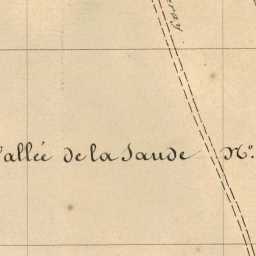 allée de la Saude N.º